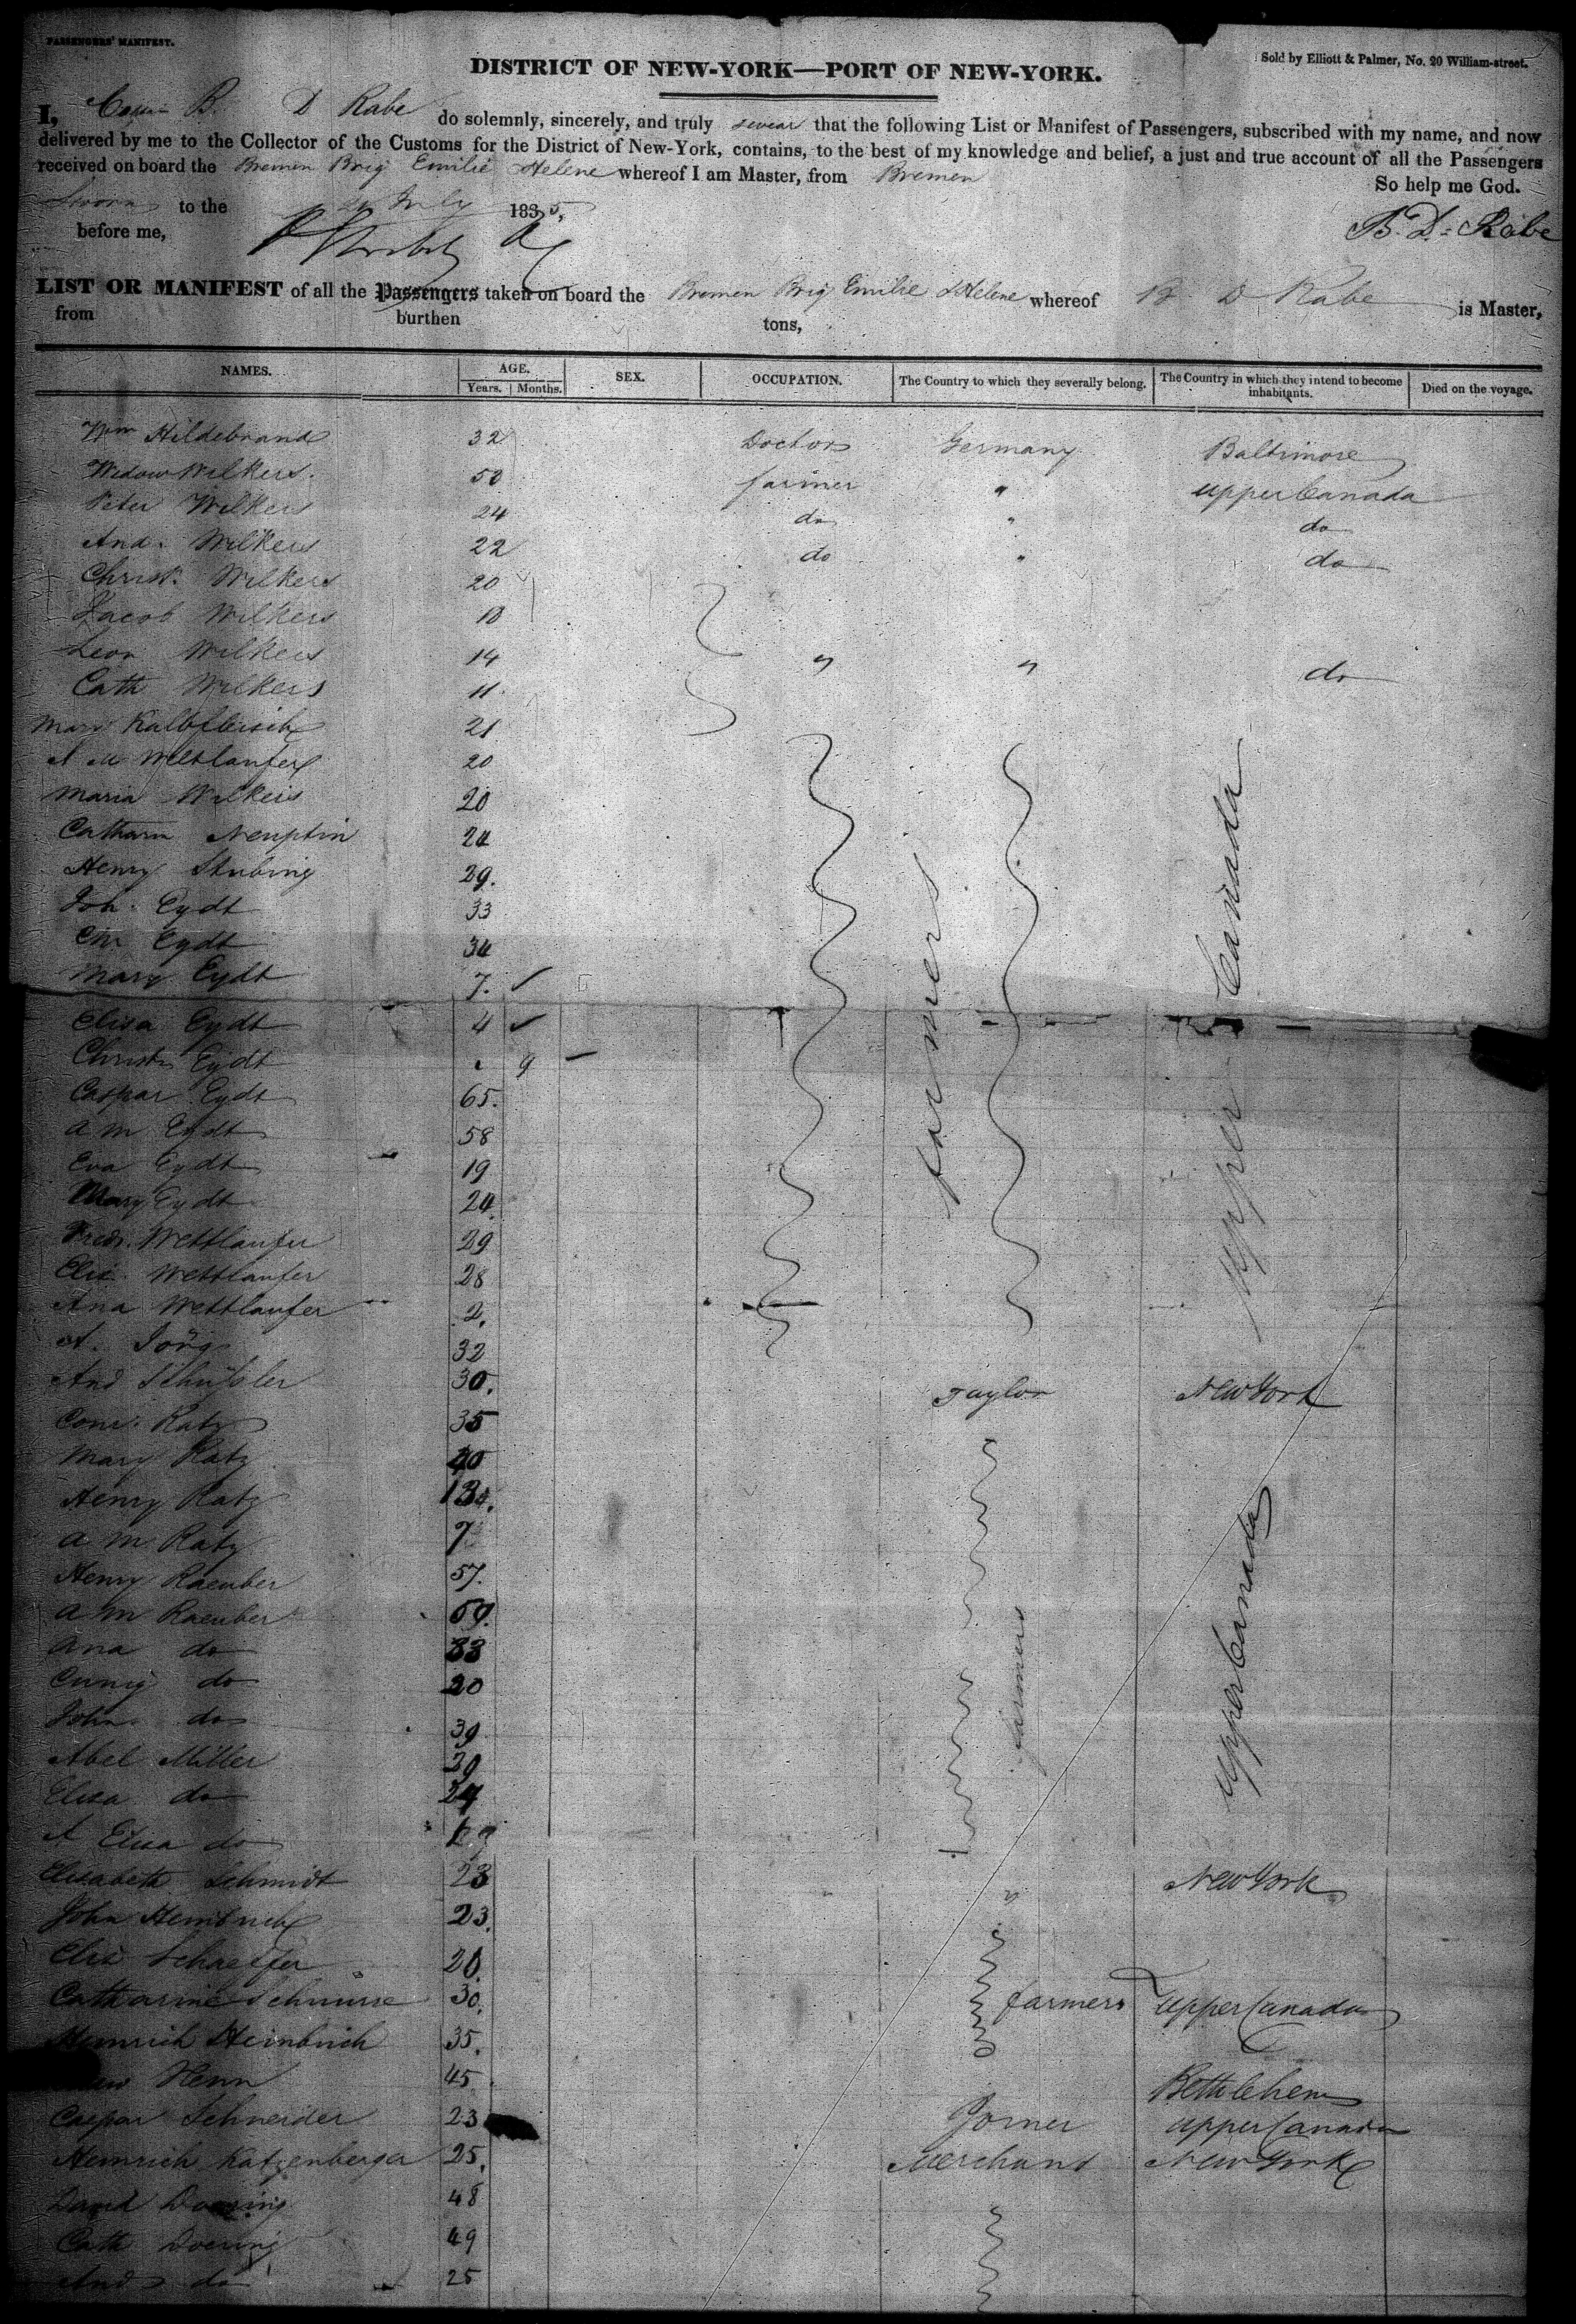 PASSENGERS' MANIFEST.
Sold by Elliott & Palmer, No. 20 William-street.
DISTRICT OF NEW-YORK—PORT OF NEW-YORK.
I, B. D Rabe do solemnly, sincerely, and truly swear that the following List or Manifest of Passengers, subscribed with my name, and now
delivered by me to the Collector of the Customs for the District of New-York, contains, to the best of my knowledge and belief, a just and true account of all the Passengers
received on board the Bremen Brig Emilie Helene whereof I am Master, from Bremen
So help me God.
Sworn to the July 1835,
before me,
B. D. Rabe
LIST OR MANIFEST of all the Passengers taken on board the Bremen Brig Emilie & Helene whereof B D Rabe is Master,
from burthen tons,
NAMES. AGE. SEX. OCCUPATION. The Country to which they severally belong. The Country in which they intend to become inhabitants. Died on the voyage.
Years. Months.
Wm Hildebrand 32 Doctor Germany Baltimore
Widow Wilkers. 50 farmer " Upper Canada
Peter Wilkers 24 do " do
And. Wilkers 22 do " do
Christ. Wilkers 20
Jacob Wilkers 18
Leon Wilkers 14 " " do
Cath Wilkers 11
Mary Kalbfleisch 21
A M Wettlaufer 20
Maria Wilkers 20
Catharin 24
Henry Stubing 29.
Joh. Eydt 33
Chr Eydt 34
Mary Eydt 7.
Elisa Eydt 4
Christn Eydt 9
Caspar Eydt 65.
A M Eydt 58
Eva Eydt 19
Mary Eydt 24
Fredr. Wettlaufer 29
Elis. Wettlaufer 28
Ana Wettlaufer 2.
farmers
Upper Canada
A. Jörg 32
And Schüssler 30. Taylor New York
Conr. Katz 35
Mary Katz 40
Henry Katz
A M Katz 7
Henry Raeuber 57.
A M Raeuber 59.
Ana do 33
Cunig do 20
John do 39
Abel Miller 29
Elisa do 24
A Elisa do
farmers
Upper Canada
Elisabeth Schmidt 23 " New York
John Heinbuch 23.
Elis Schaeffer 20.
Catharine Schnurre 30. farmers Upper Canada
Heinrich Heinbuch 35.
Henn 45 Bethlehem
Caspar Schneider 23 Joiner Upper Canada
Heinrich Katzenberger 25. Merchant New York
David Doering 48
Cath Doering 49
And do 25